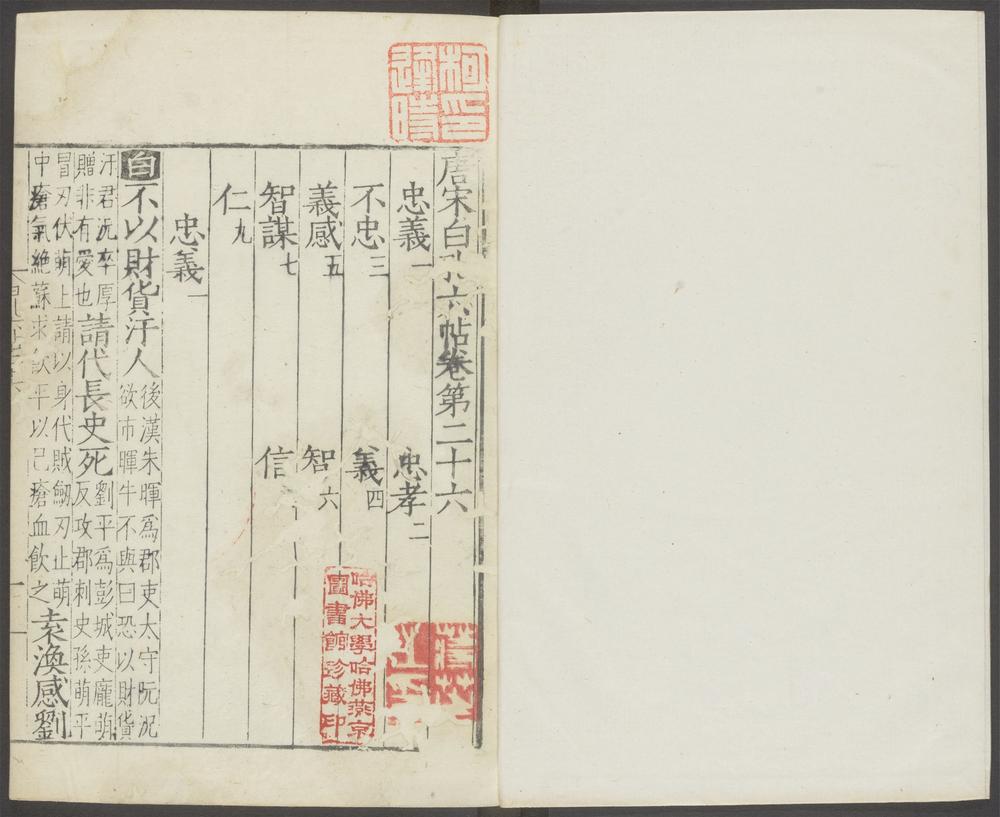 柯逢時印
唐宋白孔六帖卷第二十六
忠義一　忠孝二
不忠三　義四
義感五　智六
智謀七　信
仁九
忠義一
白不以財貨汙人後漢朱暉爲郡吏太守阮况
欲市暉牛不與曰恐以財貨
汙君况卒厚
贈非有愛也請代長史死劉平爲彭城吏龐萌
反攻郡刺史孫萌平
冒刃伏萌上請以身代賊劒刃止萌
中瘡氣絶蘇求飲平以己瘡血飲之袁渙感劉
哈佛大學哈佛燕京
圖書館珍藏印